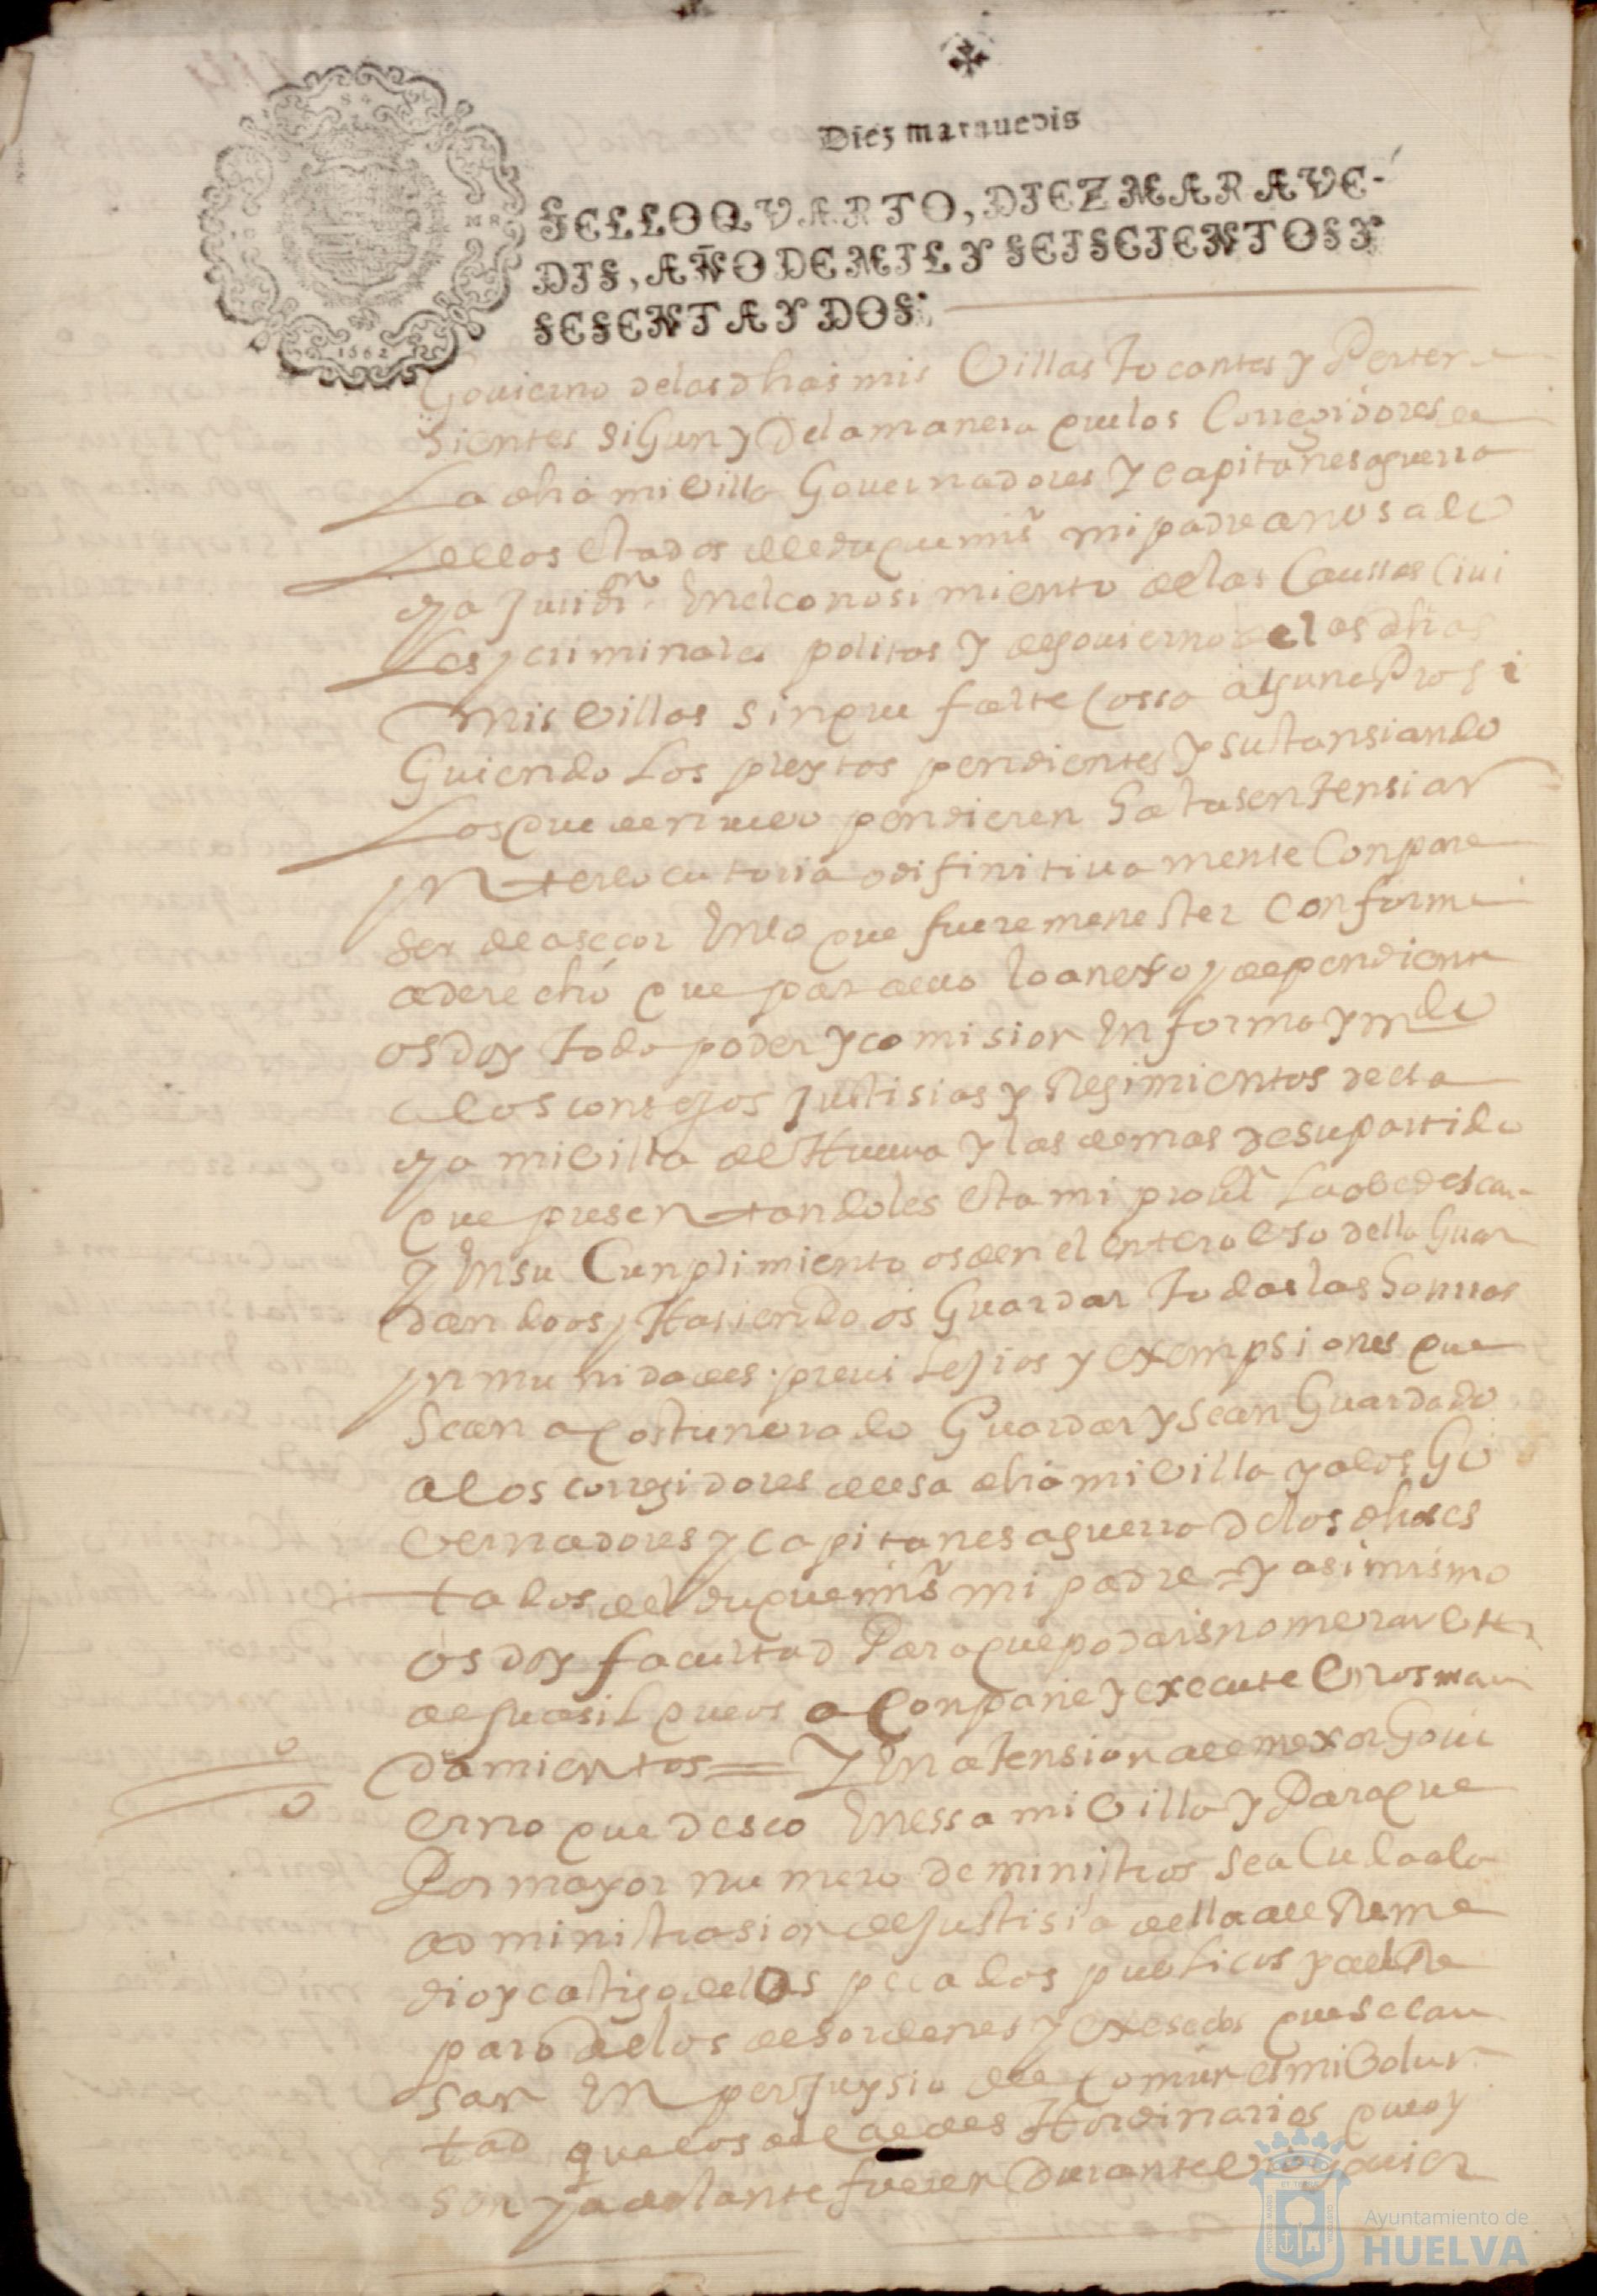 Diez marauedis
SELLO QVARTO, DIEZ MARAVE-
DIS, AÑO DE MIL Y SEISCIENTOS Y
SESENTA Y DOS.
1662
Gouierno delas dhas mis Villas tocantes y Perter
sientes sigun y Dela manera que los Corregidores de
La dha mi Villa Gouernadores y capitanes aguerra
de los estados del duque mi sr mi padre an usado
ya Juridn En el conosimiento de las Caussas Ciui
Les y criminales politos y de gouierno de las dhas
mis Villas sin que falte Cossa alguna Prosi
Guiendo Los pleytos pendientes y sustansiando
Los que de nueuo pendieren hasta sentensiar
ynterlocutoria o difinitiua mente Con pare
ser de asesor En lo que fuere menester conforme
a derecho que para ello lo anexo y dependiente
os doy todo poder y comision En forma y mdo
a los consejos Justisias y Regimientos de esta
ya mi Villa de Huelua y las demas de su partido
que presentandoles esta mi prouin La obedescan
y En su Cunplimiento os den el entero Uso della Guar
dandoos y Hasiendo os Guardar todas las honrras
ynmunidades preuilejios y exempsiones que
se an acostunbrado Guardar y se an Guardado
a los corregidores de esa dha mi Villa y a los Go
vernadores y capitanes aguerra de los dhos es
tados del duque mi sr mi padre = y asi mismo
os doy facultad Para que podais nomerar Un
alguasil que os aconpañe y execute Uros man
damientos = Y En atension de el mexor Goui
erno que deseo En essa mi Villa y Para que
Por mayor numero de ministros sea Cudada la
administrasion de Justisia della de el Reme
dio y castigo de los pecados publicos y de el Re
paro de los desordenes y exsesos que se cau
san En perjuysio de el comun es mi Volun
tad que los alcaldes Hordinarios que oy
son y adelante fueren Durante Uro gouier
Ayuntamiento de
HUELVA